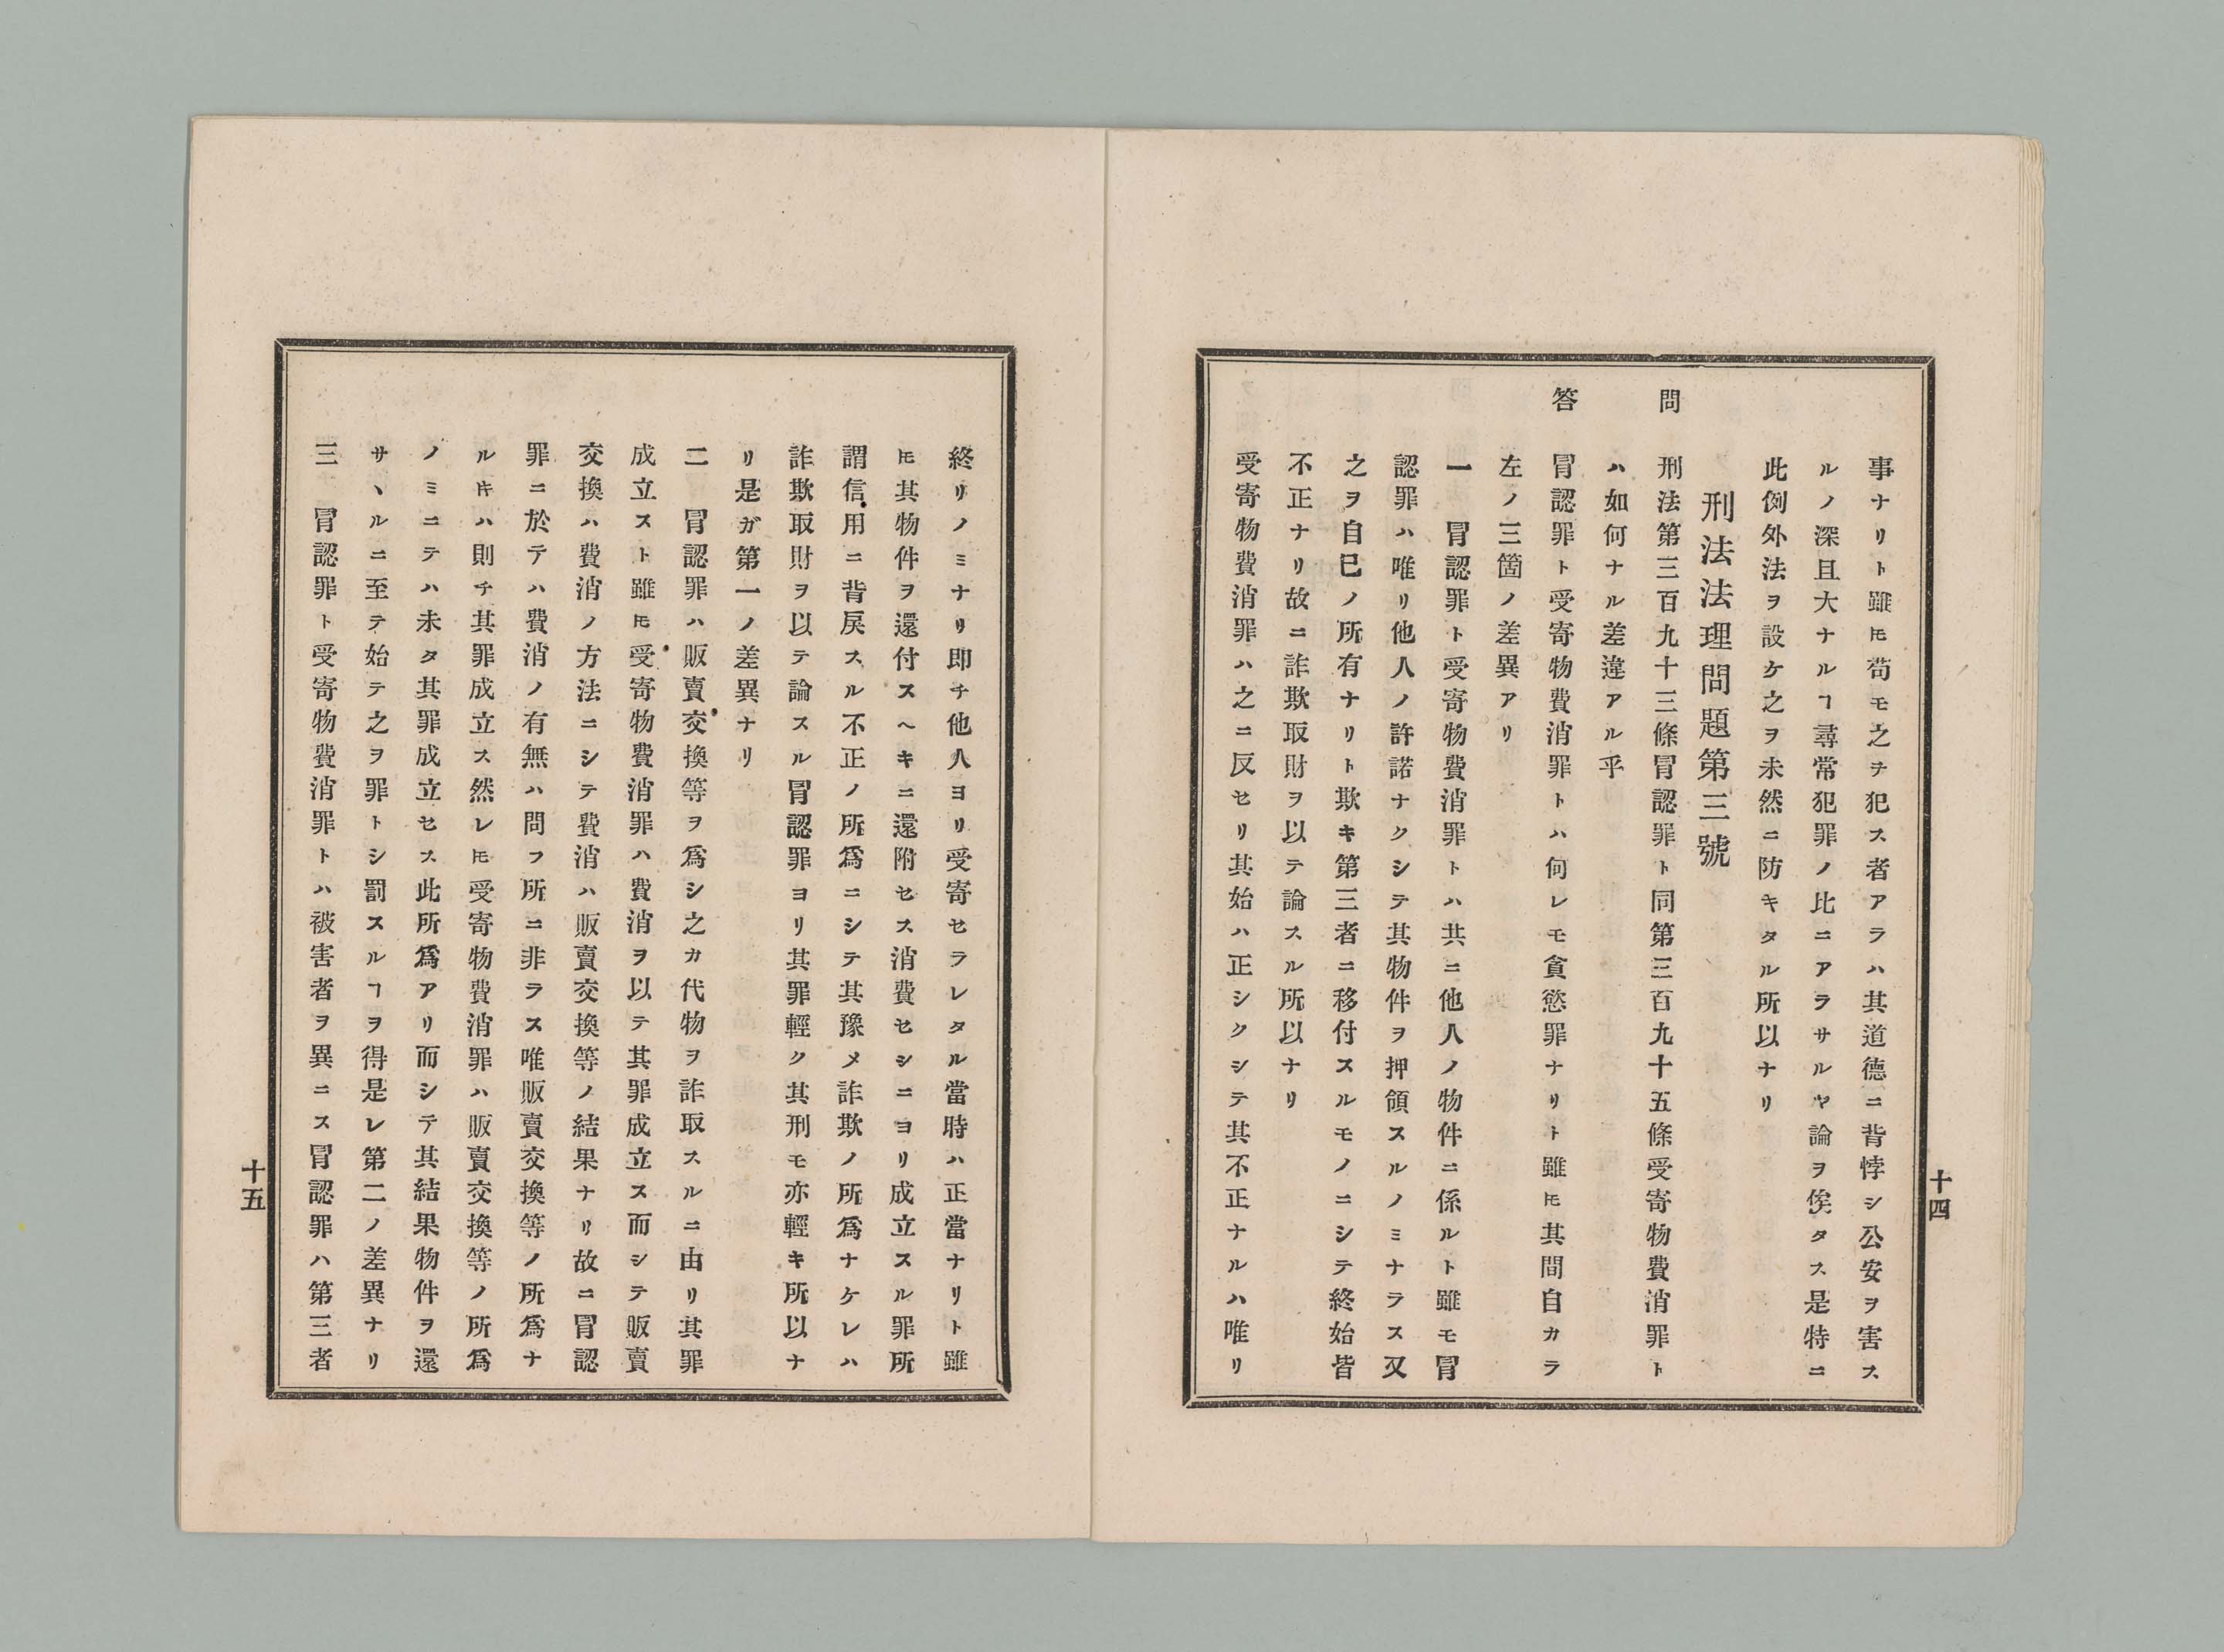 事ナリト雖𪜈苟モ之ヲ犯ス者アラハ其道德ニ背悖シ公安ヲ害ス
ルノ深且大ナルヿ尋常犯罪ノ比ニアラサルヤ論ヲ俟タス是特ニ
此例外法ヲ設ケ之ヲ未然ニ防キタル所以ナリ
刑法法理問題第三號
問 刑法第三百九十三條冒認罪ト同第三百九十五條受寄物費消罪ト
ハ如何ナル差違アル乎
答 冒認罪ト受寄物費消罪トハ何レモ貪慾罪ナリト雖𪜈其間自カラ
左ノ三箇ノ差異アリ
一 冒認罪ト受寄物費消罪トハ共ニ他人ノ物件ニ係ルト雖モ冒
認罪ハ唯リ他人ノ許諾ナクシテ其物件ヲ押領スルノミナラス又
之ヲ自已ノ所有ナリト欺キ第三者ニ移付スルモノニシテ終始皆
不正ナリ故ニ詐欺取財ヲ以テ論スル所以ナリ
受寄物費消罪ハ之ニ反セリ其始ハ正シクシテ其不正ナルハ唯リ
十四
終リノミナリ即チ他人ヨリ受寄セラレタル當時ハ正當ナリト雖
𪜈其物件ヲ還付スヘキニ還附セス消費セシニヨリ成立スル罪所
謂信用ニ背戻スル不正ノ所爲ニシテ其豫メ詐欺ノ所爲ナケレハ
詐欺取財ヲ以テ論スル冒認罪ヨリ其罪輕ク其刑モ亦輕キ所以ナ
リ是ガ第一ノ差異ナリ
二 冒認罪ハ販賣交換等ヲ爲シ之カ代物ヲ詐取スルニ由リ其罪
成立スト雖𪜈受寄物費消罪ハ費消ヲ以テ其罪成立ス而シテ販賣
交換ハ費消ノ方法ニシテ費消ハ販賣交換等ノ結果ナリ故ニ冒認
罪ニ於テハ費消ノ有無ハ問フ所ニ非ラス唯販賣交換等ノ所爲ナ
ルキハ則チ其罪成立ス然レ𪜈受寄物費消罪ハ販賣交換等ノ所爲
ノミニテハ未タ其罪成立セス此所爲アリ而シテ其結果物件ヲ還
サヽルニ至テ始テ之ヲ罪トシ罰スルヿヲ得是レ第二ノ差異ナリ
三 冒認罪ト受寄物費消罪トハ被害者ヲ異ニス冒認罪ハ第三者
十五